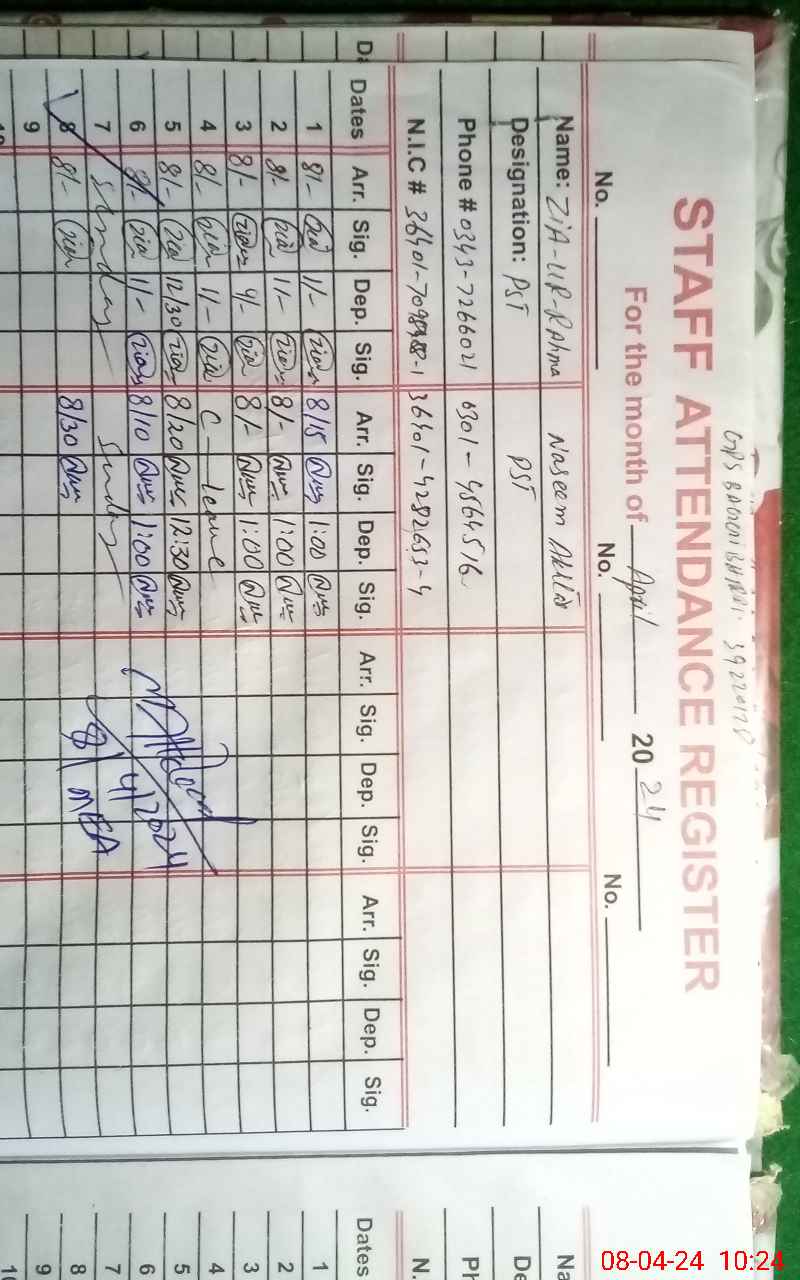 GPS 39220178
STAFF ATTENDANCE REGISTER
For the month of April 2024
No. No. No.
Name: Zia-UR-Rahma Naseem Akhtar
Designation: PST PST
Phone # 0343-7266021 0301-4564516
N.I.C # 36401-7098 -1 36401-4282653-4
Dates Arr. Sig. Dep. Sig. Arr. Sig. Dep. Sig. Arr. Sig. Dep. Sig. Arr. Sig. Dep. Sig.
1 8/- Zia 11/- Zia 8/15 1:00
2 8/- Zia 11/- Zia 8/- 1:00
3 8/- Zia 9/- Zia 8/- 1:00
4 8/- Zia 11/- Zia C-leave
5 8/- Zia 12/30 Zia 8/20 12:30
6 8/- Zia 11/- Zia 8/10 1:00
7 Sunday Sunday
8 8/- Zia 8/30
9
10
8/4/2024
MEA
Na
De
Ph
N.
Dates
1
2
3
4
5
6
7
8
9
10
08-04-24 10:24